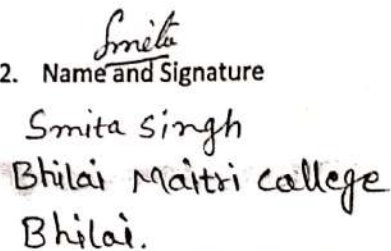 Smita
2. Name and Signature
Smita Singh
Bhilai Maitri college
Bhilai.